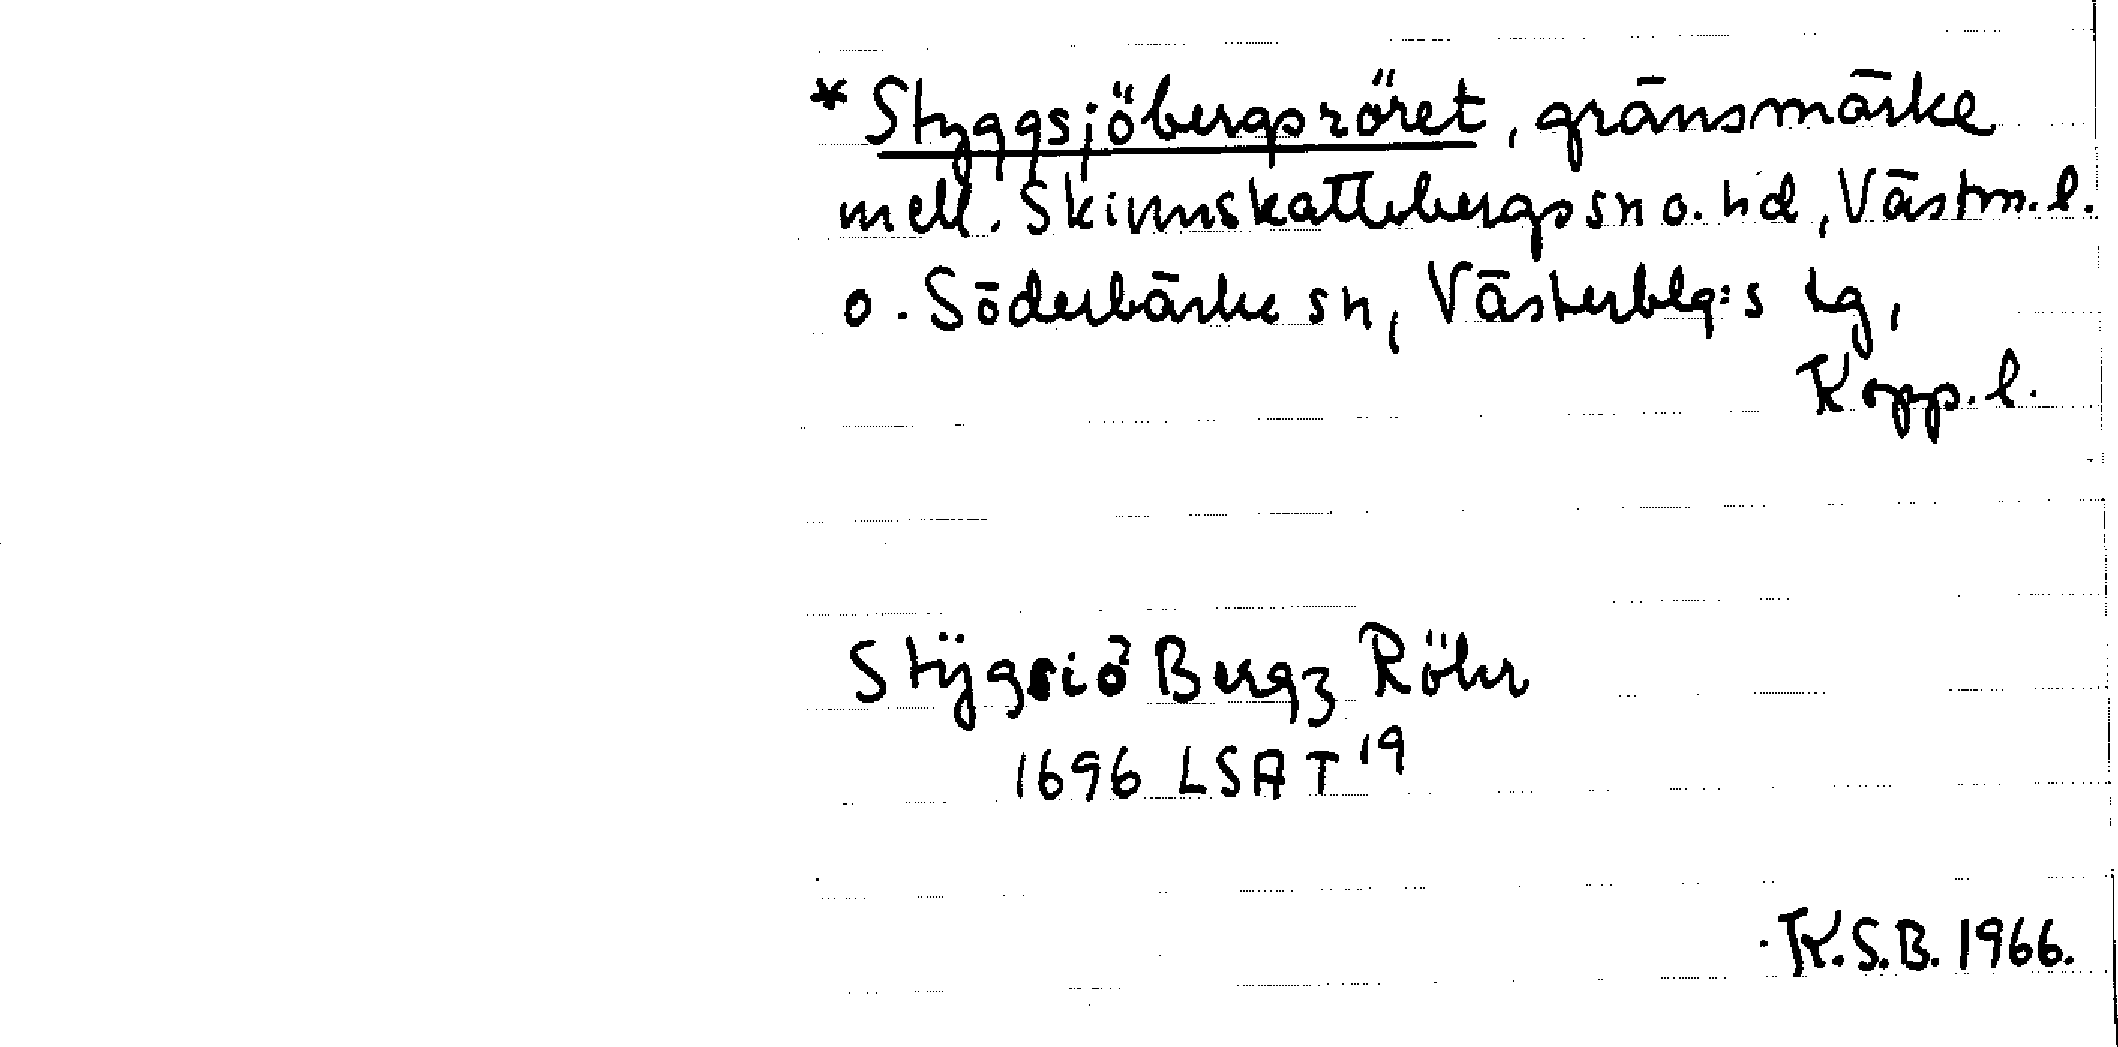 * Styggsjöbergsröret, gränsmärke
mell. Skinnskattebergs sn o. hd, Västm. l.
o. Söderbärke sn, Västerbg:s tg,
Kopp. l.
Stÿgsiö Bergz Röhr
1696 LSA T 19
K.S.B. 1966.